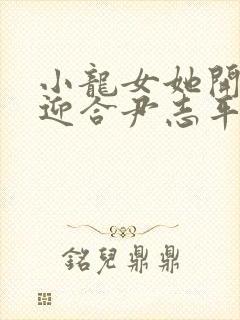 小龍女她開
迎合尹志平
銘兒鼎鼎